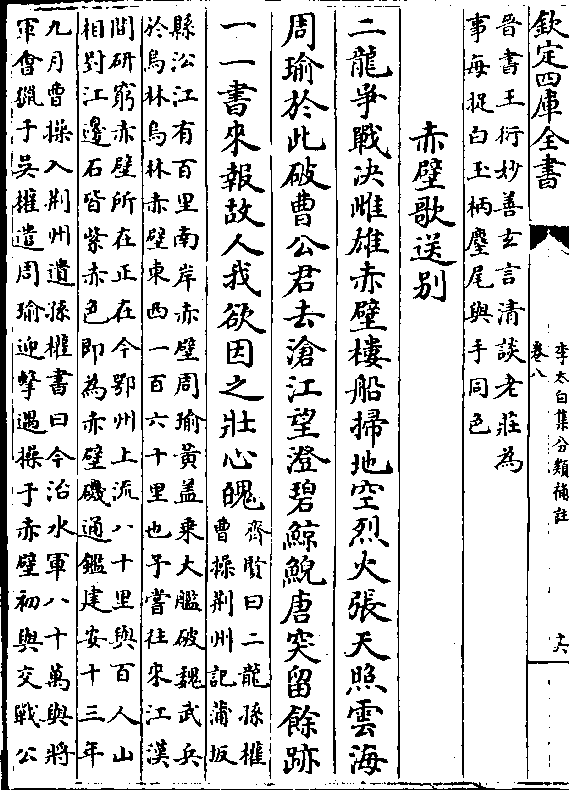 欽定四庫全書
李太白集分類補註
卷八
十六
晉書王衍妙善玄言清談老莊為
事每捉白玉柄麈尾與手同色
赤壁歌送別
二龍爭戰決雌雄赤壁樓船掃地空烈火張天照雲海
周瑜於此破曹公君去滄江望澄碧鯨鯢唐突留餘跡
一一書來報故人我欲因之壯心魄
齊賢曰二龍孫權
曹操荆州記蒲坂
縣沿江有百里南岸赤壁周瑜黃盖乗大艦破魏武兵
於烏林烏林赤壁東西一百六十里也予嘗往來江漢
間研窮赤壁所在正在今鄂州上流八十里與百人山
相對江邊石皆紫赤色即為赤壁磯通鑑建安十三年
九月曹操入荆州遺孫權書曰今治水軍八十萬與將
軍會獵于吳權遣周瑜迎擊遇操于赤壁初與交戰公